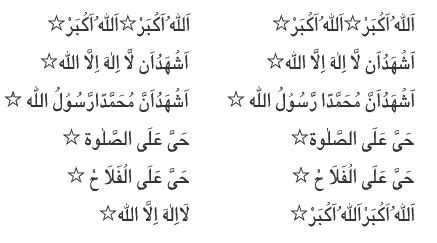 اَللّٰهُ اَكْبَرْ☆اَللّٰهُ اَكْبَرْ☆ اَللّٰهُ اَكْبَرْ☆اَللّٰهُ اَكْبَرْ☆
اَشْهَدُاَن لَّا اِلٰهَ اِلَّا اللّٰه☆ اَشْهَدُاَن لَّا اِلٰهَ اِلَّا اللّٰه☆
اَشْهَدُاَنَّ مُحَمَّدًا رَّسُوْلُ اللّٰه ☆ اَشْهَدُاَنَّ مُحَمَّدًارَّسُوْلُ اللّٰه ☆
حَىَّ عَلَى الصَّلٰوة☆ حَىَّ عَلَى الصَّلٰوة ☆
حَىَّ عَلَى الْفَلَا حْ ☆ حَىَّ عَلَى الْفَلَا حْ ☆
اَللّٰهُ اَكْبَرْاَللّٰهُ اَكْبَرْ☆ لَااِلٰهَ اِلَّا اللّٰه☆